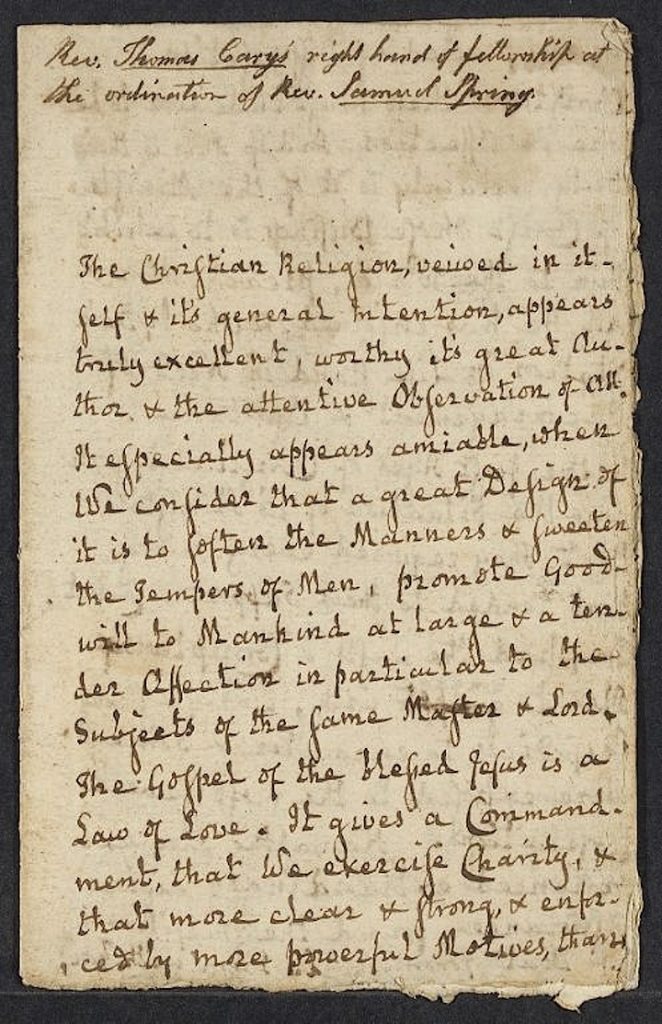 Rev. Thomas Cary's right hand of fellowship at
the ordination of Rev. Samuel Spring.
The Chriſtian Religion, veiwed in it-
ſelf & it's general Intention, appears
truly excellent, worthy it's great Au-
thor & the attentive Obſervation of All.
It eſpecially appears amiable, when
We conſider that a great Deſign of
it is to ſoften the Manners & ſweeten
the Tempers of Men, promote Good-
will to Mankind at large & a ten-
der Affection in particular to the
Subjects of the ſame Maſter & Lord.
The Goſpel of the bleſsed Jeſus is a
Law of Love. It gives a Command-
ment, that We exerciſe Charity, &
that more clear & ſtrong, & enfor-
ced by more powerful Motives, than